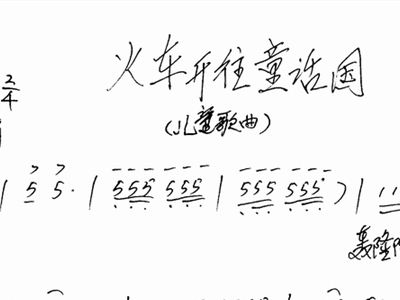 火车开往童话国
(儿童歌曲)
2/4
| 5 5. | 555 555 | 555 555 ) | 11
轰隆